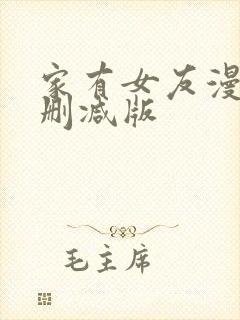 家有女友漫
删减版
毛主席